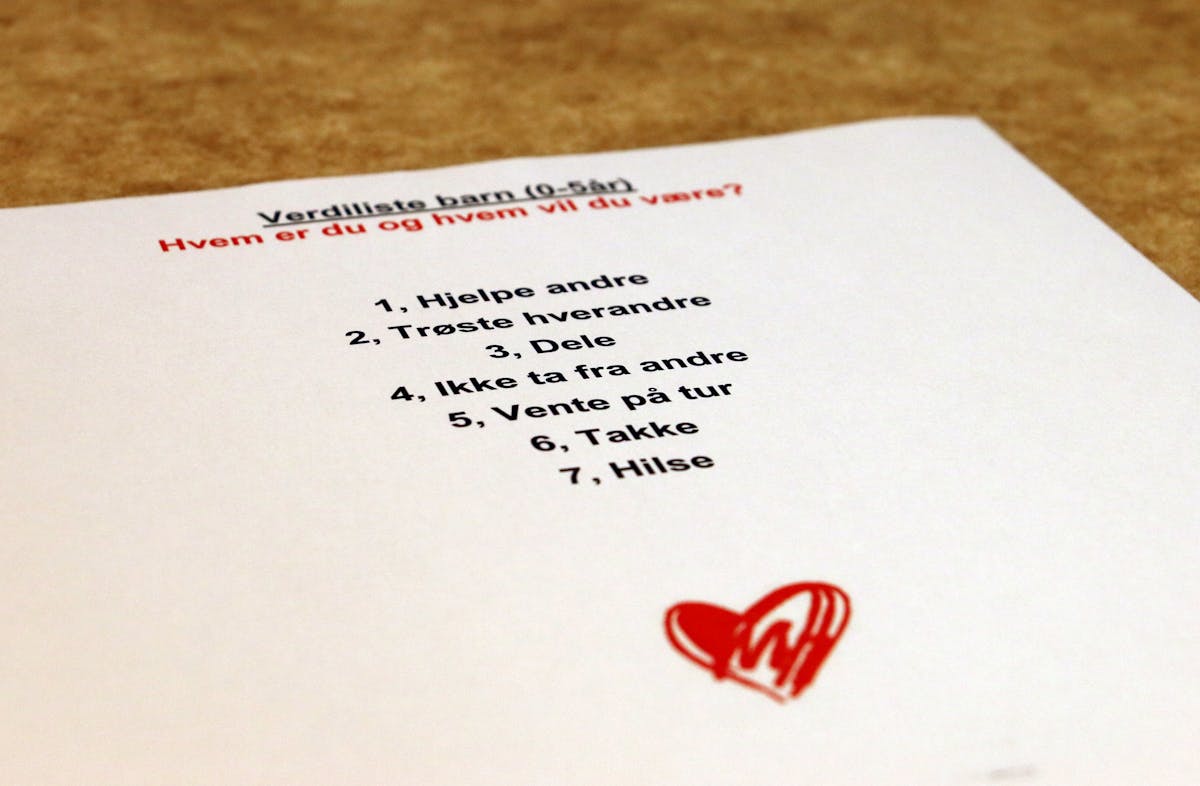 Verdiliste barn (0-5år)
Hvem er du og hvem vil du være?
1, Hjelpe andre
2, Trøste hverandre
3, Dele
4, Ikke ta fra andre
5, Vente på tur
6, Takke
7, Hilse